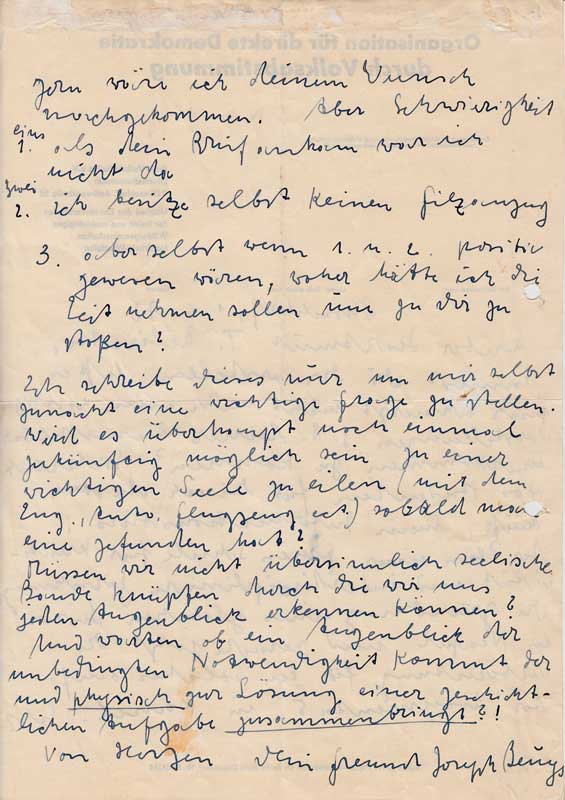 Organisation für direkte Demokratie
durch Volksabstimmung
gern wäre ich deinem Wunsch
nachgekommen. Aber Schwierigkeit
eins
1. als dein Brief ankam war ich
nicht da
zwei
2. ich besitze selbst keinen Filzanzug
3. aber selbst wenn 1. u. 2. positiv
gewesen wären, woher hätte ich die
Zeit nehmen sollen um zu dir zu
stoßen?
Ich schreibe dieses nur um mir selbst
zunächst eine wichtige Frage zu stellen.
Wird es überhaupt noch einmal
zukünftig möglich sein zu einer
wichtigen Seele zu eilen (mit dem
Zug, Auto, Flugzeug ect.) sobald man
eine gefunden hat?
Müssen wir nicht übersinnlich seelische
Bande knüpfen durch die wir uns
jeden Augenblick erkennen können?
Und warten ob ein Augenblick der
unbedingten Notwendigkeit kommt der
uns physisch zur Lösung einer geschicht-
lichen Aufgabe zusammenbringt?!
Von Herzen dein Freund Joseph Beuys